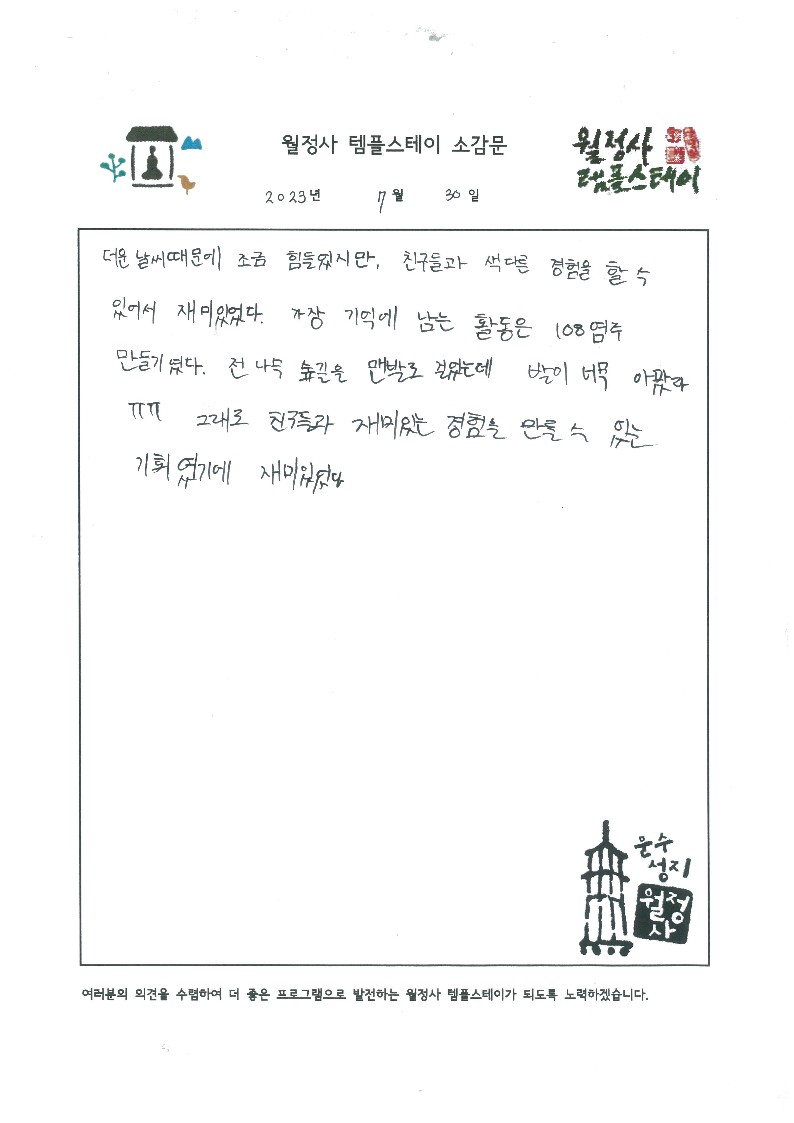 월정사 템플스테이 소감문
월정사
템플스테이
2023년 7월 30일
더운 날씨때문에 조금 힘들었지만, 친구들과 색다른 경험을 할 수
있어서 재미있었다. 가장 기억에 남는 활동은 108염주
만들기였다. 전나무 숲길을 맨발로 걸었는데 발이 너무 아팠다
ㅠㅠ 그래도 친구들과 재미있는 경험을 만들 수 있는
기회였기에 재미있었다
문수
성지
월정
사
여러분의 의견을 수렴하여 더 좋은 프로그램으로 발전하는 월정사 템플스테이가 되도록 노력하겠습니다.